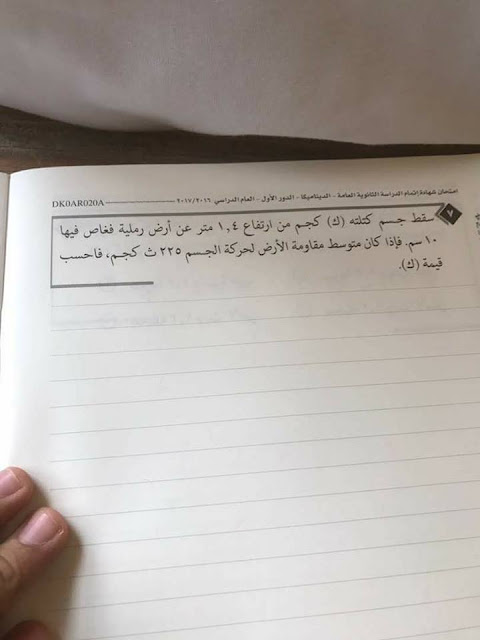 امتحان شهادة إتمام الدراسة الثانوية العامة - الديناميكا - الدور الأول - العام الدراسي ٢٠١٧/٢٠١٦ DK0AR020A
٧ سقط جسم كتلته (ك) كجم من ارتفاع ١,٤ متر عن أرض رملية فغاص فيها
١٠ سم. فإذا كان متوسط مقاومة الأرض لحركة الجسم ٢٢٥ ث كجم، فاحسب
قيمة (ك).